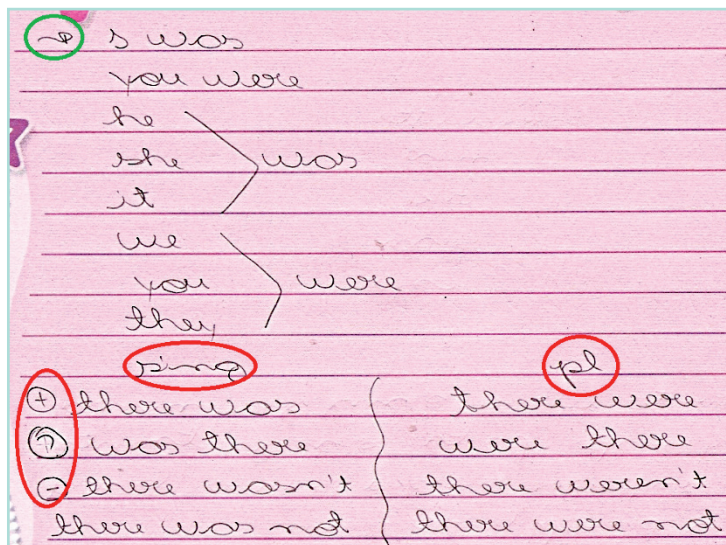 → I was
you were
he
she was
it
we
you were
they
sing pl
+ there was there were
? was there were there
- there wasn't there weren't
there was not there were not